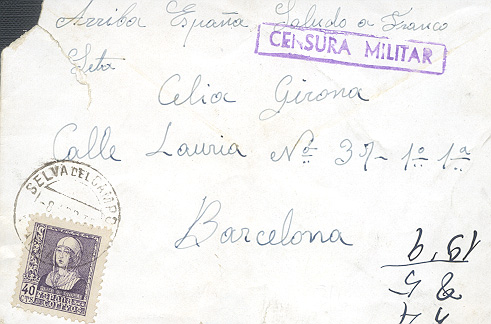 Arriba España Saludo a Franco
CENSURA MILITAR
Srta
Celia Girona
Calle Lauria Nº 37 - 1º 1ª
SELVA DEL CAMPO
Barcelona
40
CTS
ESPAÑA
CORREOS